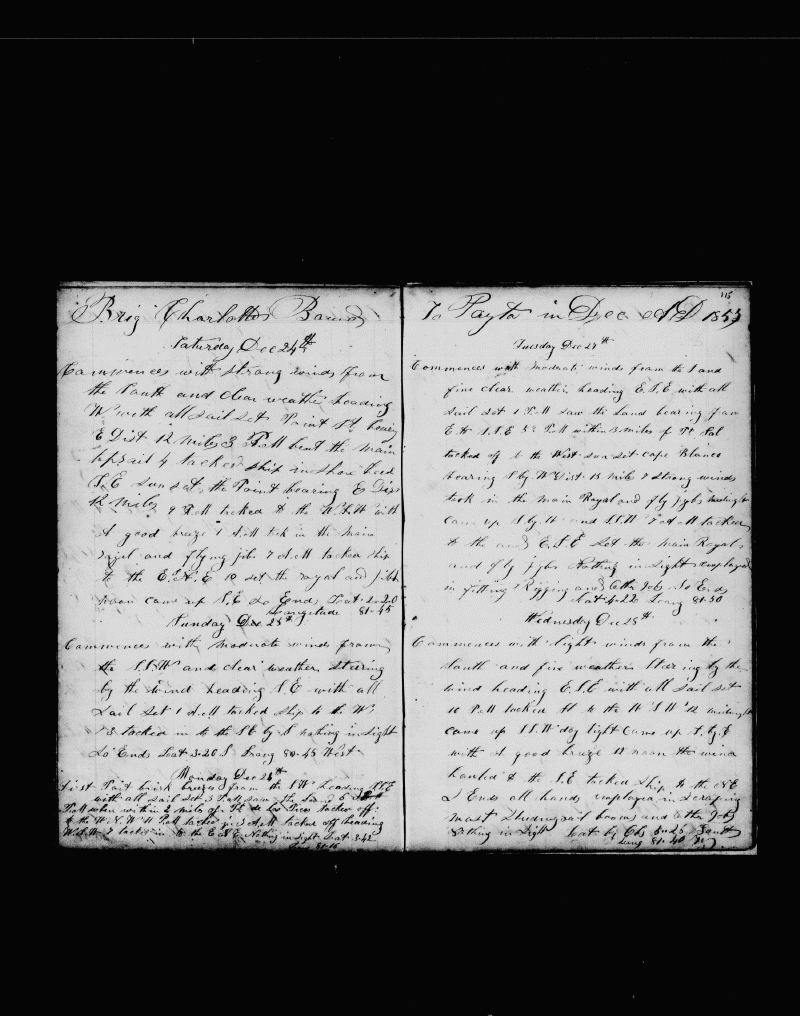 Brig Charlotte Bound
Saturday Dec 24th
Commences with strong winds from
the South and clear weather heading
W with all sail set Point bearing
E Dist 12 miles 3 P.M bent the main
topsail 4 tacked ship in shore
S.E sun set the Point bearing E Dist
12 miles 9 P.M tacked to the W.S.W with
A good breeze 1 A.M took in the main
royal and flying jib 7 A.M tacked ship
to the E.S.E 10 set the royal and jibb
noon came up S.E So Ends Lat 2-20
Longitude 81-45
Sunday Dec 25th
Commences with moderate winds from
the S.S.W and clear weather steering
by the wind heading S.E with all
Sail Set 1 A.M tacked ship to the W
3 tacked in to the S.E by S nothing in sight
So Ends Lat 3-26 S Long 80-45 West
Monday Dec 26th
First Part brisk breezes from the S.W heading S.S.E
with all sail set 3 P.M saw the
P.M when within 2 miles of tacked off
to the W.N.W 11 P.M tacked in 3 A.M tacked off heading
W.S.W 7 tacked in to the E.S.E Nothing in sight Lat 3-42
Long 81-16
115
To Payta in Dec AD 1853
Tuesday Dec 27th
Commences with moderate winds from the S and
fine clear weather heading E.S.E with all
Sail set 1 P.M saw the Land bearing from
E to S.S.E 5 P.M within 3 miles of Pt
tacked off to the West sun set cape Blanco
bearing S by W Dist 15 mile 7 strong winds
took in the main Royal and fly jybs midnight
came up S.by.W and S.S.W 7 A.M tacked
to the and E.S.E Set the main Royal
and fly jybs Nothing in Sight employed
in fitting Rigging and Other Jobs So Ends
Lat 4-22 Long 81-50
Wednesday Dec 28th
Commences with light winds from the
South and fine weather Steering by the
wind heading E.S.E with all sail set
10 P.M tacked to the W.S.W 12 midnight
came up S.S.W day light came up S.by.E
with A good breeze 12 noon the wind
hauled to the S.E tacked Ship to the
So Ends all hands employed in scraping
mast Studingsail booms and Other Jobs
Nothing in Sight Lat by Obs South
Long 81-40